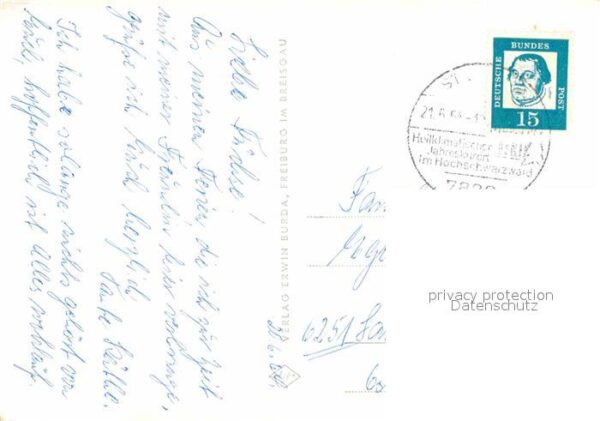 Liebe Füchse!
Aus meinen Ferien die ich zur Zeit
mit meiner Freundin hier verbringe,
grüße ich Euch herzlich
Tante Käthe.
Ich habe solange nichts gehört von
Euch, hoffentlich ist Alles wohlauf.
20.6.64.
VERLAG ERWIN BURDA, FREIBURG IM BREISGAU
DEUTSCHE BUNDES POST
15
ST.
21.6.64
Heilklimatischer
Jahreskurort
im Hochschwarzwald
Fam
6251
privacy protection
Datenschutz